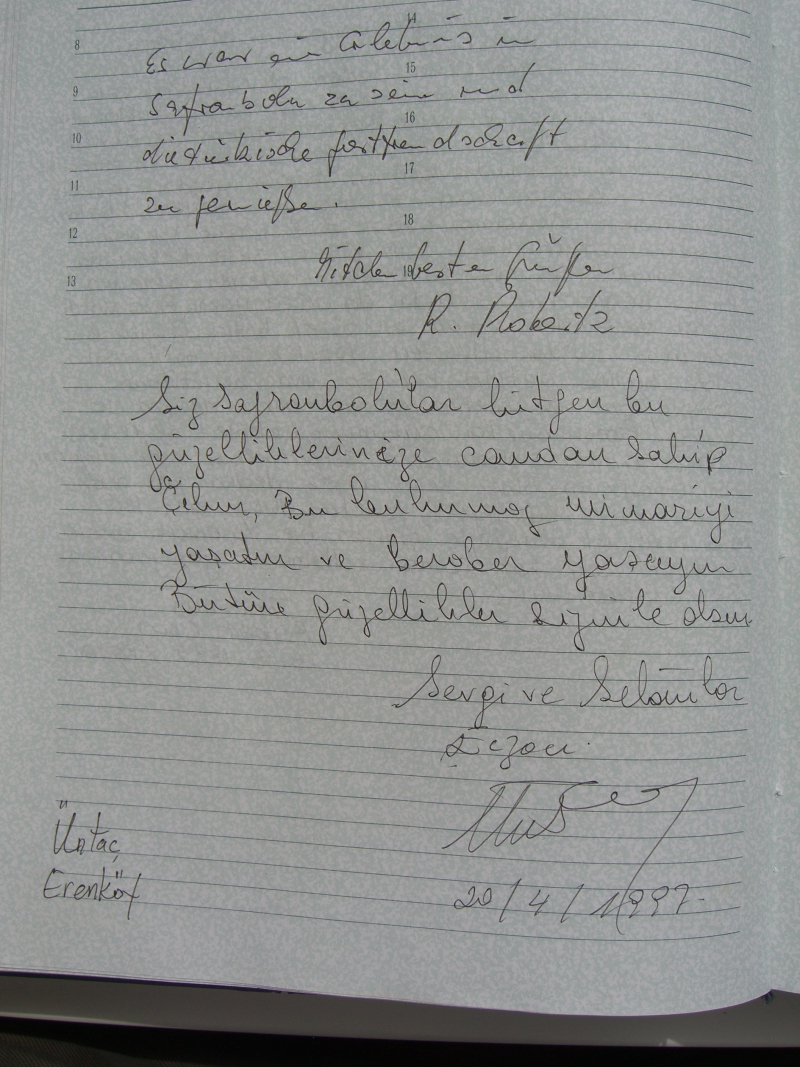 14
8
Es war ein Erlebnis in
15
9
Safranbolu zu sein und
16
10
die türkische Gastfreundschaft
17
11
zu genießen.
18
12
Mit den besten Grüßen
19
13
R.
Siz Safranbolulular lütfen bu
güzelliklerinize candan sahip
Çıkın, Bu bulunmaz mimariyi
yaşatın ve beraber yaşayın
Bütün güzellikler sizinle olsun.
Sevgi ve Selâmlar
Eczacı
20/4/1997
Üntaç
Erenköy